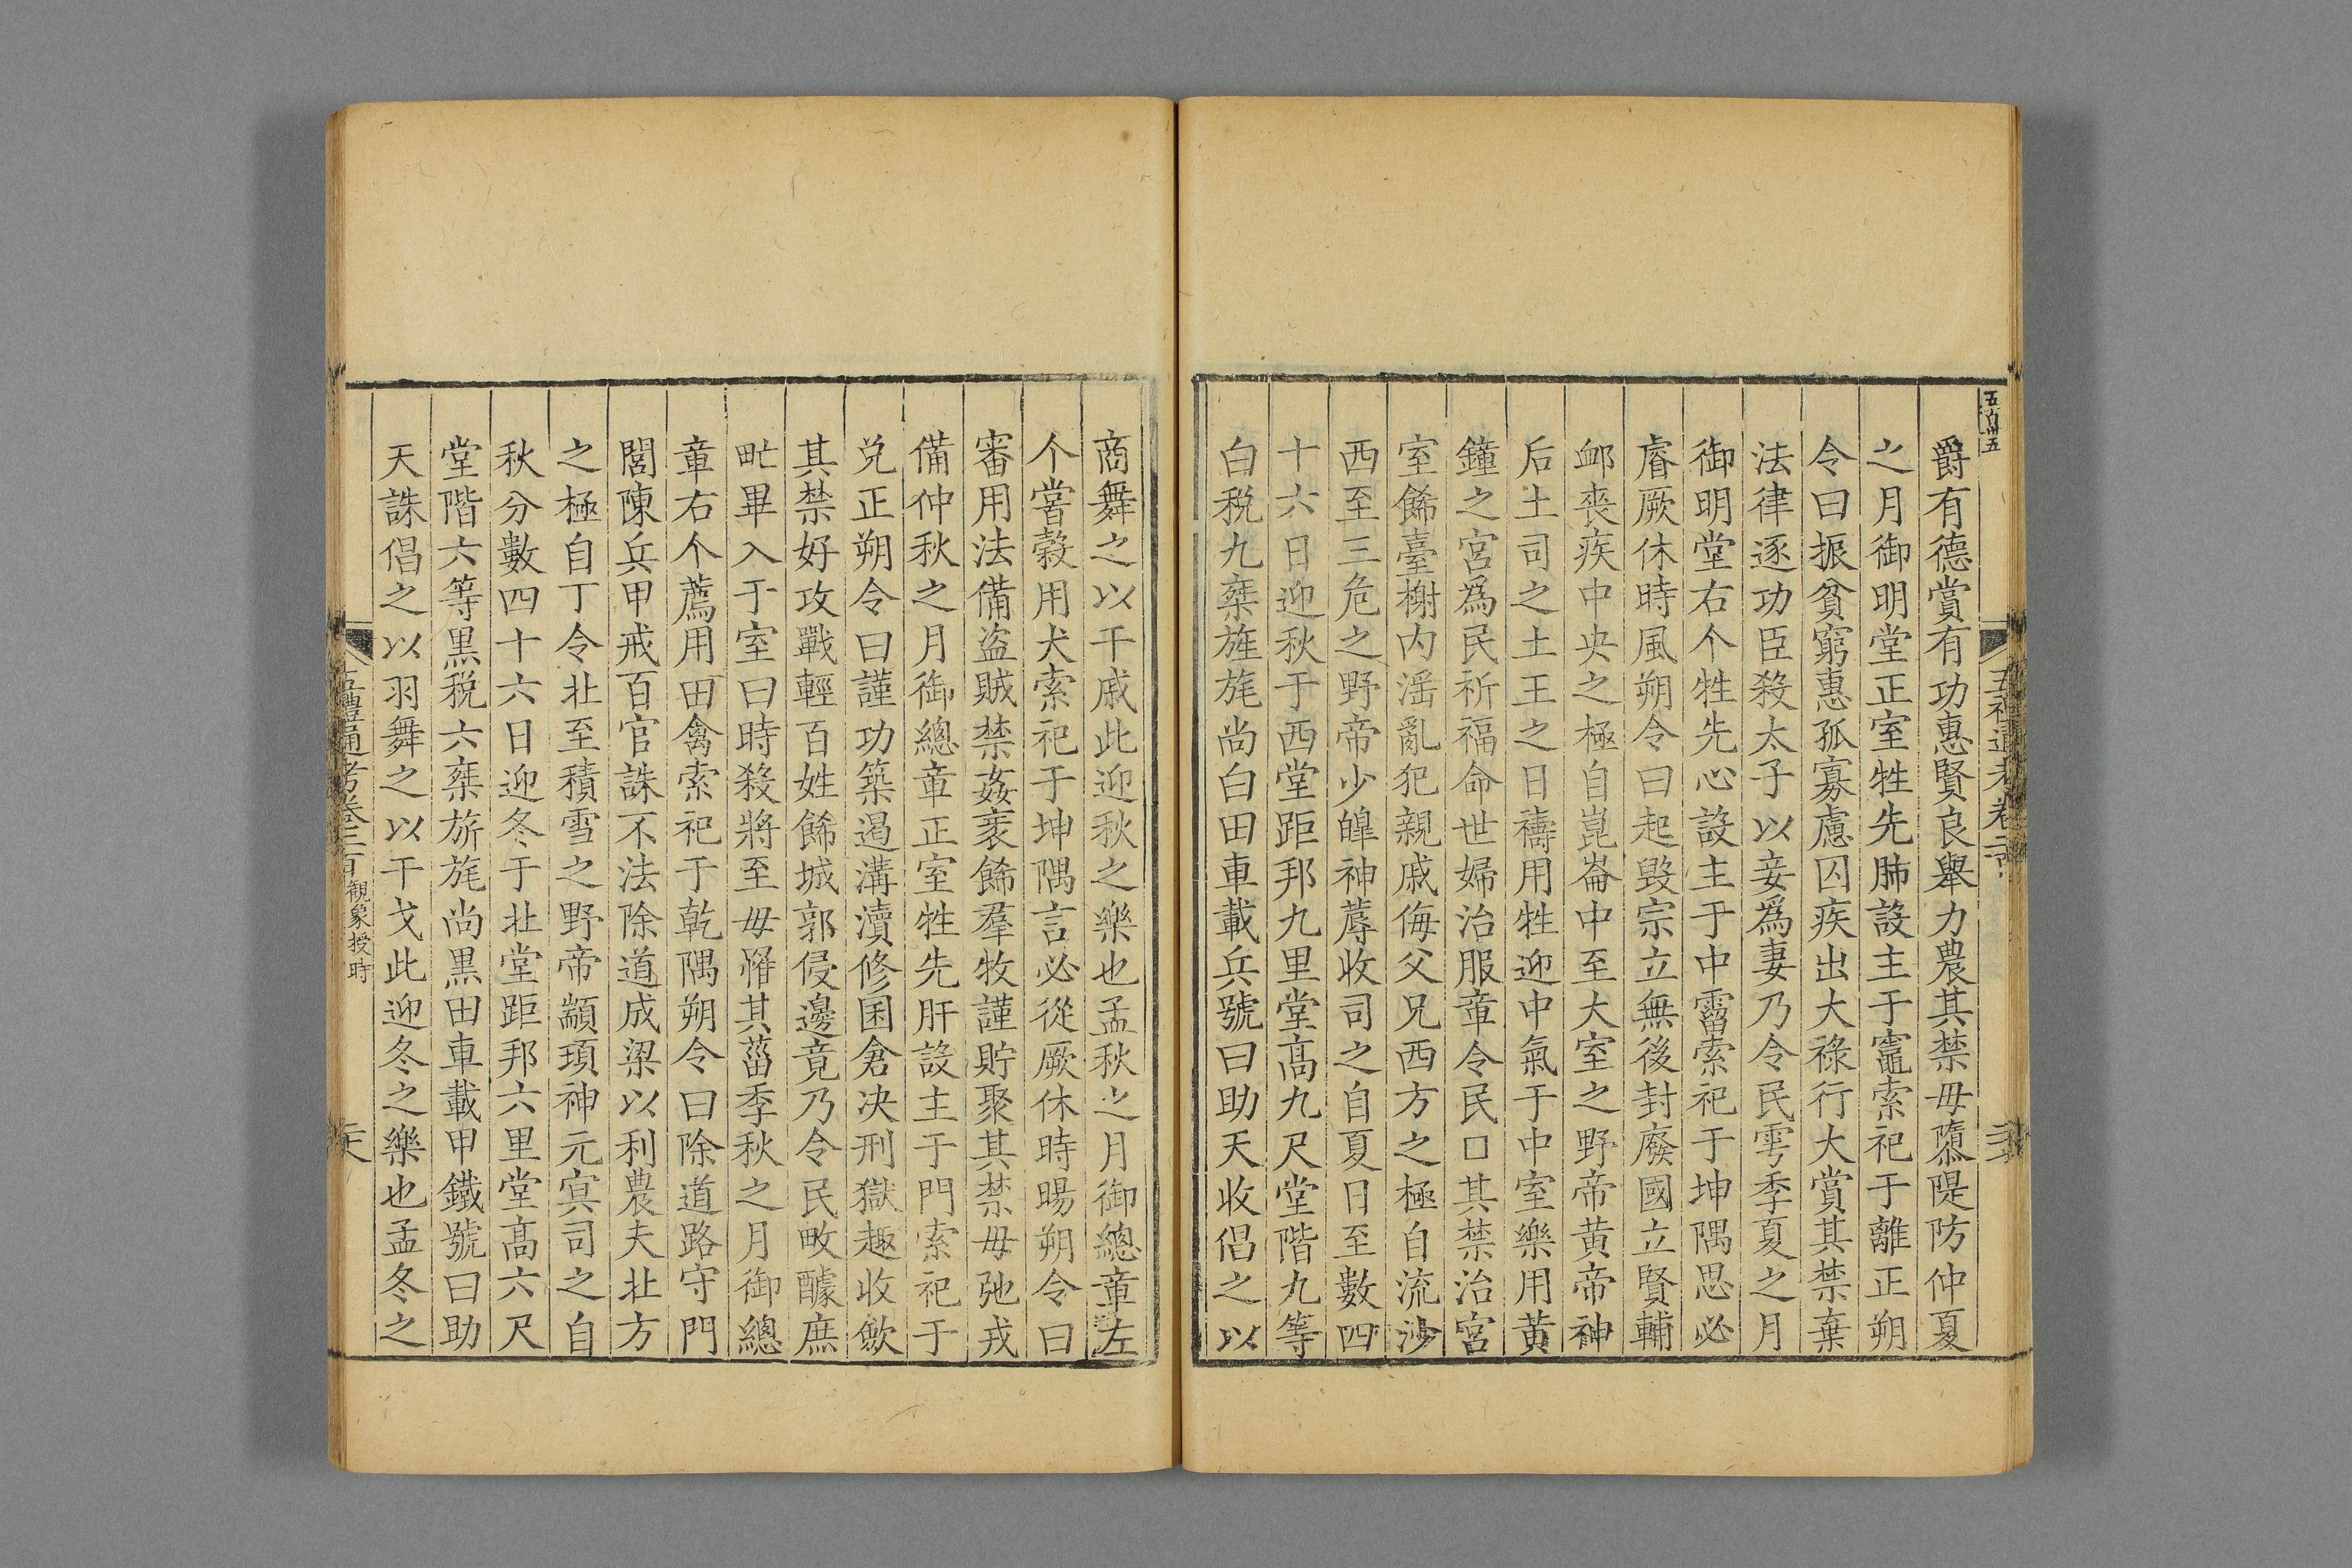 五百卅五
爵有德賞有功惠賢良舉力農其禁毋隳隄防仲夏
之月御明堂正室牲先肺設主于竈索祀于離正朔
令曰振貧窮惠孤寡慮囚疾出大祿行大賞其禁棄
法律逐功臣殺太子以妾爲妻乃令民雩季夏之月
御明堂右个牲先心設主于中霤索祀于坤隅思必
睿厥休時風朔令曰起毀宗立無後封廢國立賢輔
卹喪疾中央之極自崑崙中至大室之野帝黄帝神
后土司之土王之日禱用牲迎中氣于中室樂用黄
鐘之宮爲民祈福命世婦治服章令民口其禁治宮
室餙臺榭内滛亂犯親戚侮父兄西方之極自流沙
西至三危之野帝少皥神蓐收司之自夏日至數四
十六日迎秋于西堂距邦九里堂高九尺堂階九等
白稅九椉旌旄尚白田車載兵號曰助天收倡之以
商舞之以干戚此迎秋之樂也孟秋之月御總章左
个嘗穀用犬索祀于坤隅言必從厥休時暘朔令曰
審用法備盜賊禁姦衺餙羣牧謹貯聚其禁毋弛戎
備仲秋之月御總章正室牲先肝設主于門索祀于
兌正朔令曰謹功築遏溝瀆修囷倉决刑獄趣收斂
其禁好攻戰輕百姓餙城郭侵邊竟乃令民畋醵庶
甿畢入于室曰時殺將至毋罹其菑季秋之月御總
章右个薦用田禽索祀于乾隅朔令曰除道路守門
閭陳兵甲戒百官誅不法除道成梁以利農夫北方
之極自丁令北至積雪之野帝顓頊神元冥司之自
秋分數四十六日迎冬于北堂距邦六里堂高六尺
堂階六等黒稅六椉旂旄尚黒田車載甲鐵號曰助
天誅倡之以羽舞之以干戈此迎冬之樂也孟冬之
五禮通考卷三百 觀象授時